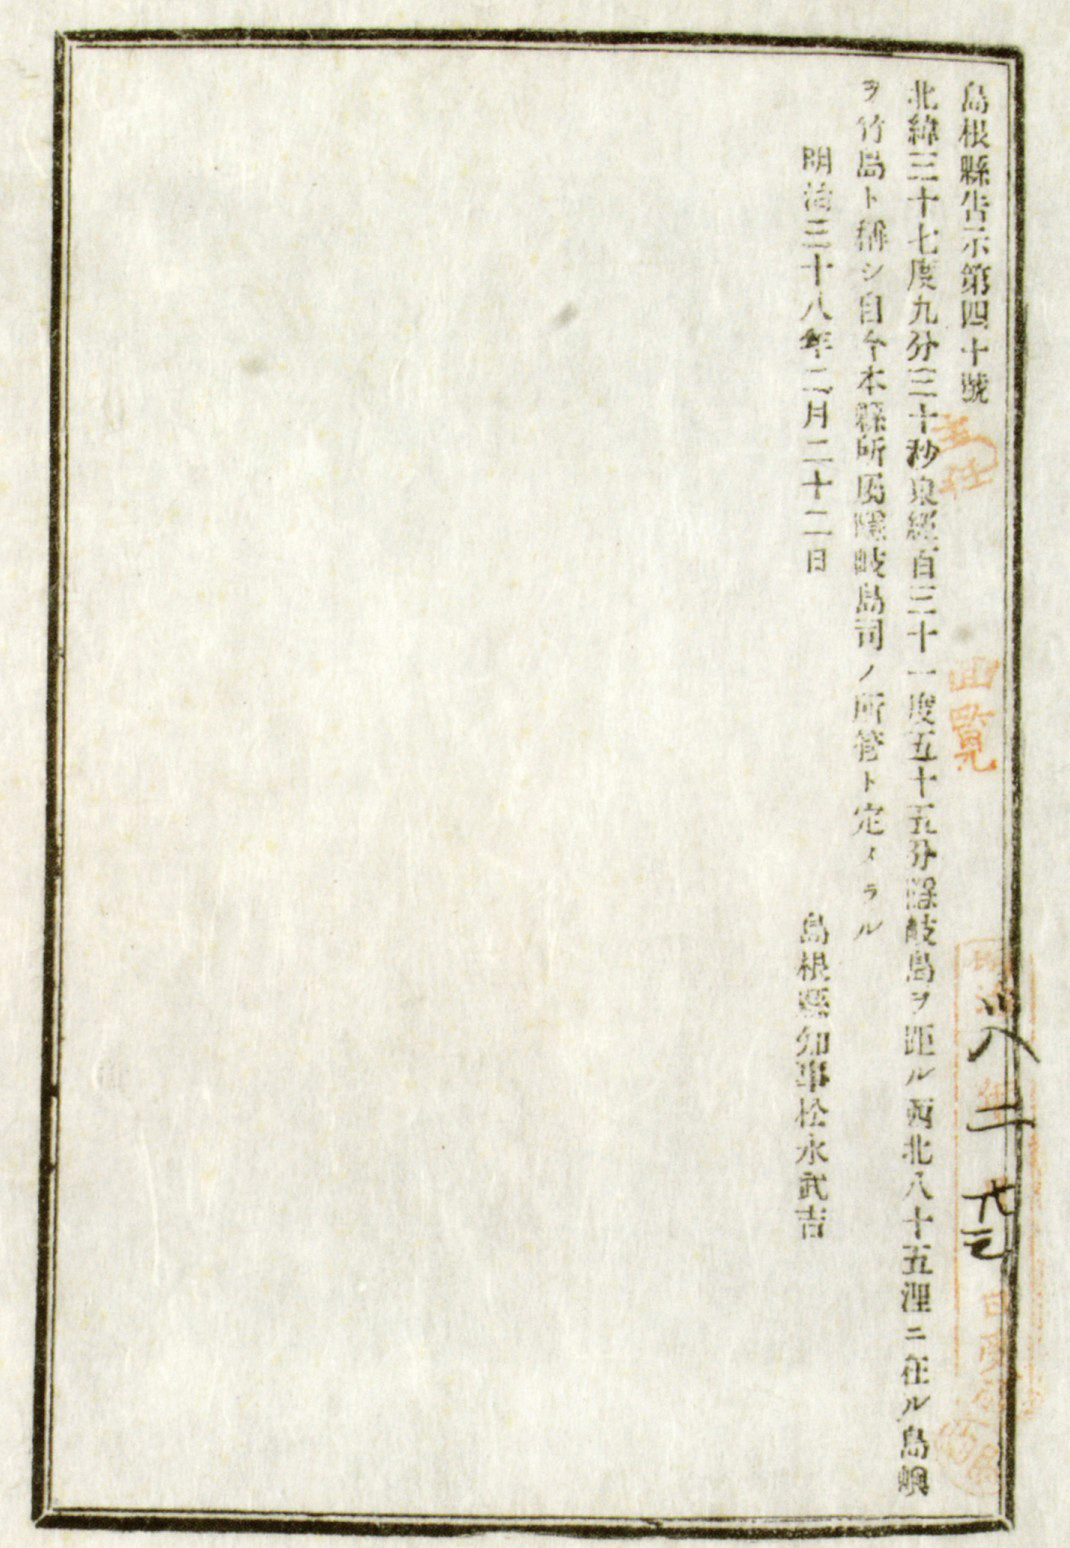 島根縣告示第四十號
北緯三十七度九分三十秒東經百三十一度五十五分隱岐島ヲ距ル西北八十五浬ニ在ル島嶼
ヲ竹島ト稱シ自今本縣所屬隱岐島司ノ所管ト定メラル
明治三十八年二月二十二日
島根縣知事松永武吉
主任
回覧
明治卅八年二月廿三日受